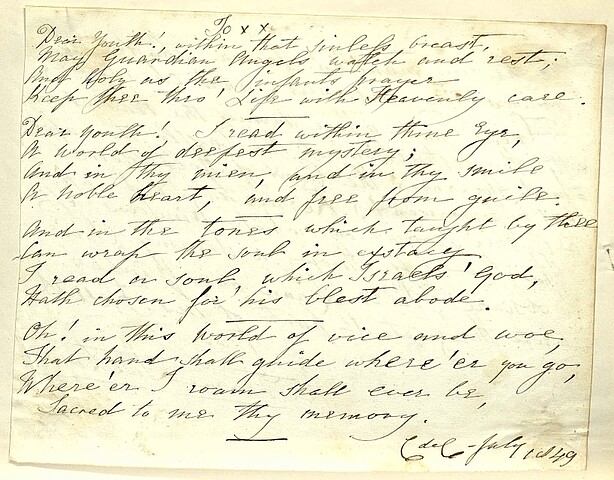 To x x
Dear Youth!, within that sinless breast,
May Guardian Angels watch and rest;
And Holy as the infants prayer
Keep thee thro' Life with Heavenly care.
Dear Youth! I read within thine Eye,
A world of deepest mystery;
And in thy mien, and in thy smile
A noble heart, and free from guile.
And in the tones which taught by thee
Can wrap the soul in extacy
I read a soul which Israels' God,
Hath chosen for his blest abode.
Oh! in this world of vice and woe,
That hand shall guide where'er you go,
Where'er I roam shall ever be,
Sacred to me thy memory.
C de C - July 1849